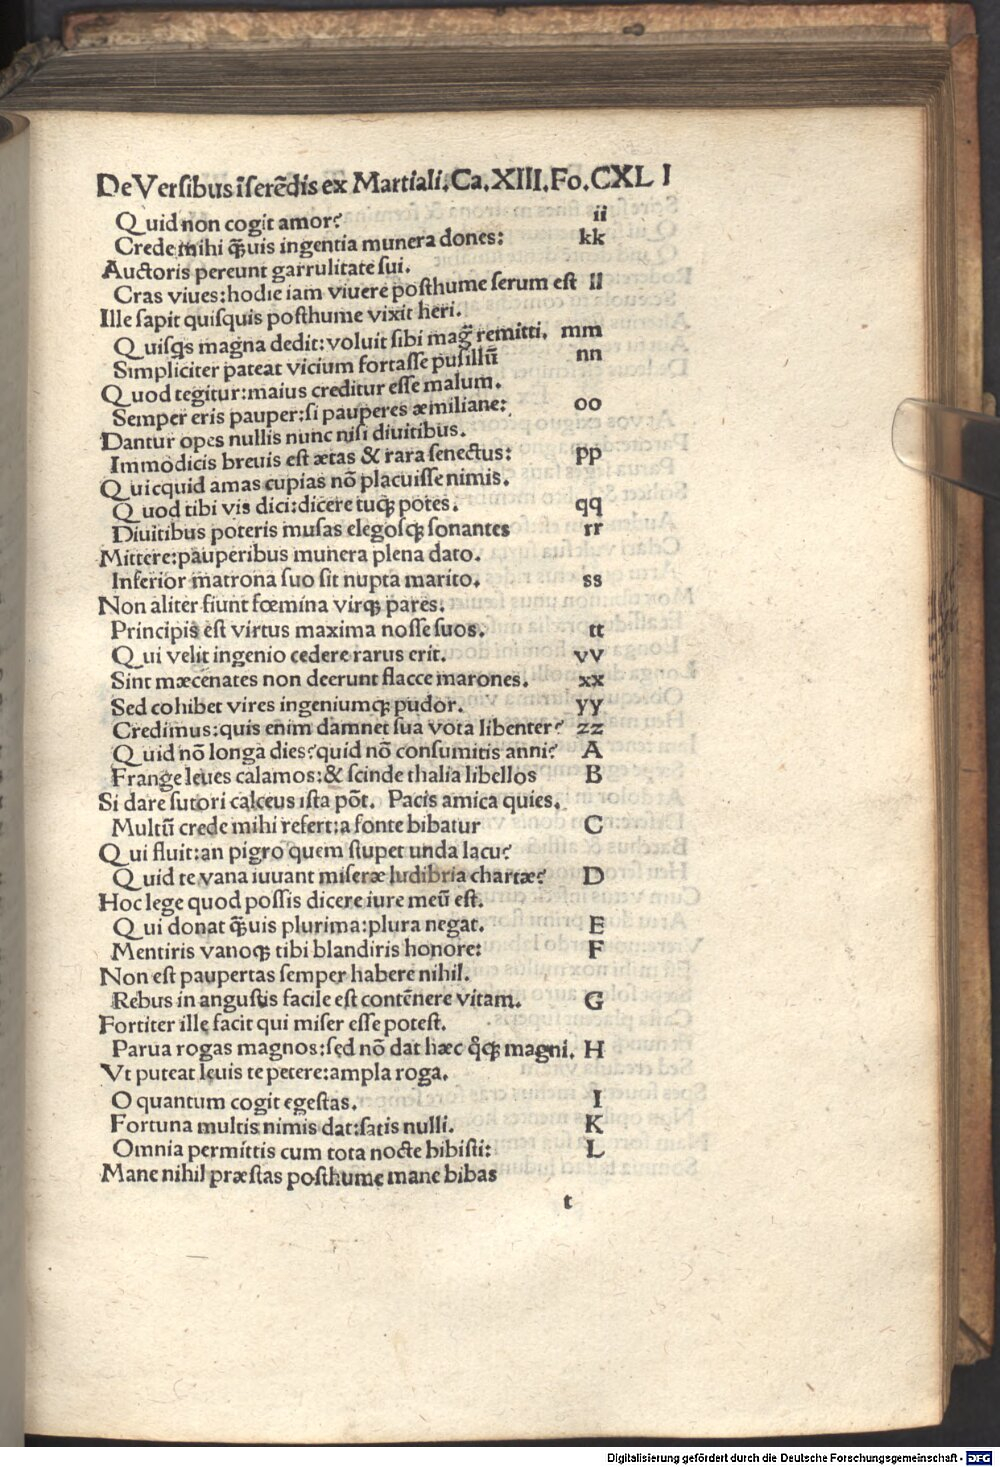 De Versibus īserēdis ex Martiali. Ca. XIII. Fo. CXL I
Quid non cogit amor? ii
Crede mihi q̄uis ingentia munera dones: kk
Auctoris pereunt garrulitate sui.
Cras viues: hodie iam viuere posthume serum est ll
Ille sapit quisquis posthume vixit heri.
Quisq̧s magna dedit: voluit sibi mag̃ remitti. mm
Simpliciter pateat vicium fortasse pusillū nn
Quod tegitur: maius creditur esse malum.
Semper eris pauper: si pauperes æmiliane: oo
Dantur opes nullis nunc nisi diuitibus.
Immodicis breuis est ætas & rara senectus: pp
Quicquid amas cupias nō placuisse nimis.
Quod tibi vis dici: dicere tuq̧ potes. qq
Diuitibus poteris musas elegosq̧ sonantes rr
Mittere: pauperibus munera plena dato.
Inferior matrona suo sit nupta marito. ss
Non aliter fiunt fœmina virq̧ pares.
Principis est virtus maxima nosse suos. tt
Qui velit ingenio cedere rarus erit. vv
Sint mæcenates non deerunt flacce marones. xx
Sed cohibet vires ingeniumq̧ pudor. yy
Credimus: quis enim damnet sua vota libenter? zz
Quid nō longa dies? quid nō consumitis anni? A
Frange leues calamos: & scinde thalia libellos B
Si dare sutori calceus ista pōt. Pacis amica quies.
Multū crede mihi refert: a fonte bibatur C
Qui fluit: an pigro quem stupet unda lacu?
Quid te vana iuuant miseræ ludibria chartæ? D
Hoc lege quod possis dicere iure meū est.
Qui donat q̄uis plurima: plura negat. E
Mentiris vanoq̧ tibi blandiris honore: F
Non est paupertas semper habere nihil.
Rebus in angustis facile est contēnere vitam. G
Fortiter ille facit qui miser esse potest.
Parua rogas magnos: sed nō dat hæc q̊q̧ magni. H
Vt puteat leuis te petere: ampla roga.
O quantum cogit egestas. I
Fortuna multis nimis dat: satis nulli. K
Omnia permittis cum tota nocte bibisti: L
Mane nihil præstas posthume mane bibas
t
Digitalisierung gefördert durch die Deutsche Forschungsgemeinschaft - DFG